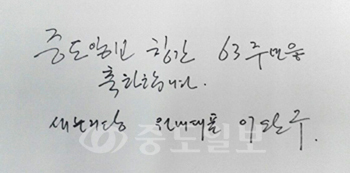 중도일보 창간 63주년을
축하합니다.
새누리당 원내대표 이완구.
중도일보